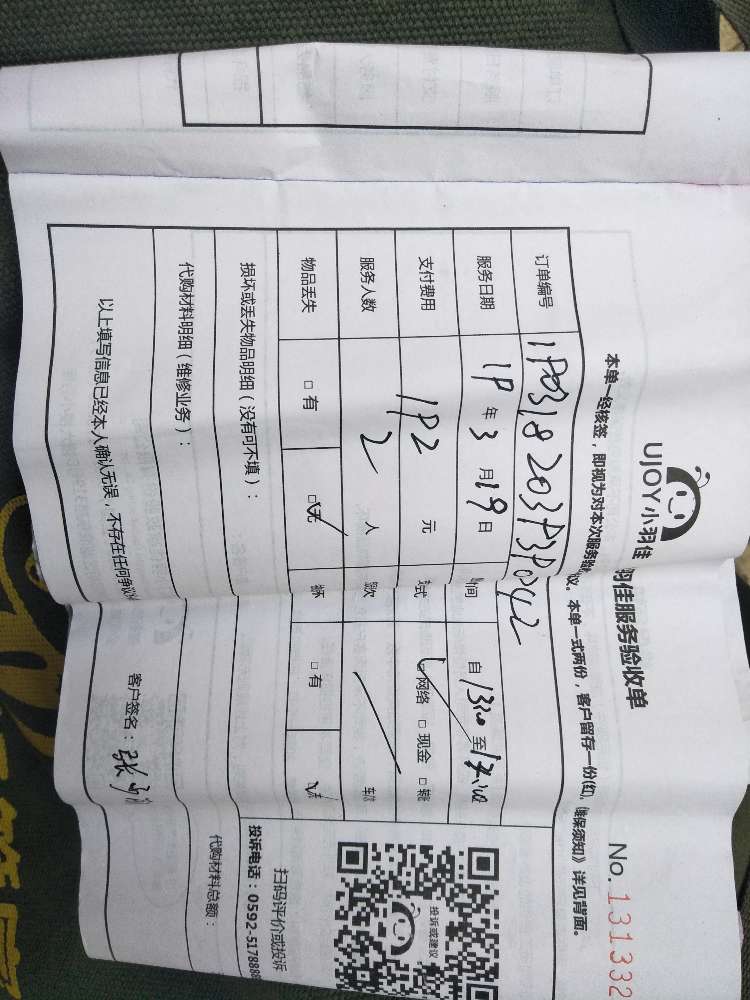 UJOY小羽佳
羽佳服务验收单
No.131332
本单一经核签，即视为对本次服务验 议。本单一式两份，客户留存一份(红)，《维保须知》详见背面。
订单编号
服务日期 19年3月19日 间 自1320至
支付费用 192元 式 网络 □现金 □
服务人数 2人 次
物品丢失 □有 □无 坏 □有
损坏或丢失物品明细（没有可不填）：
代购材料明细（维修业务）：
代购材料总额：
以上填写信息已经本人确认无误，不存在任何争议
客户签名：张
投诉或建议
扫码评价或投诉
投诉电话：0592-5178888